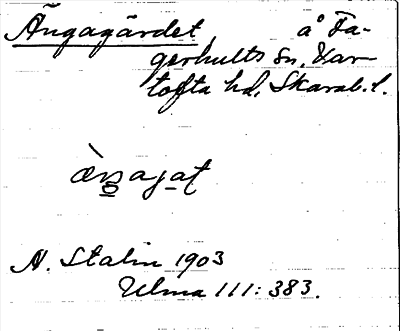 Ängagärdet, å Fa-
gerhults sn, Var-
tofta hd, Skarab. l.
N. Stalin 1903
Ulma 111: 383.